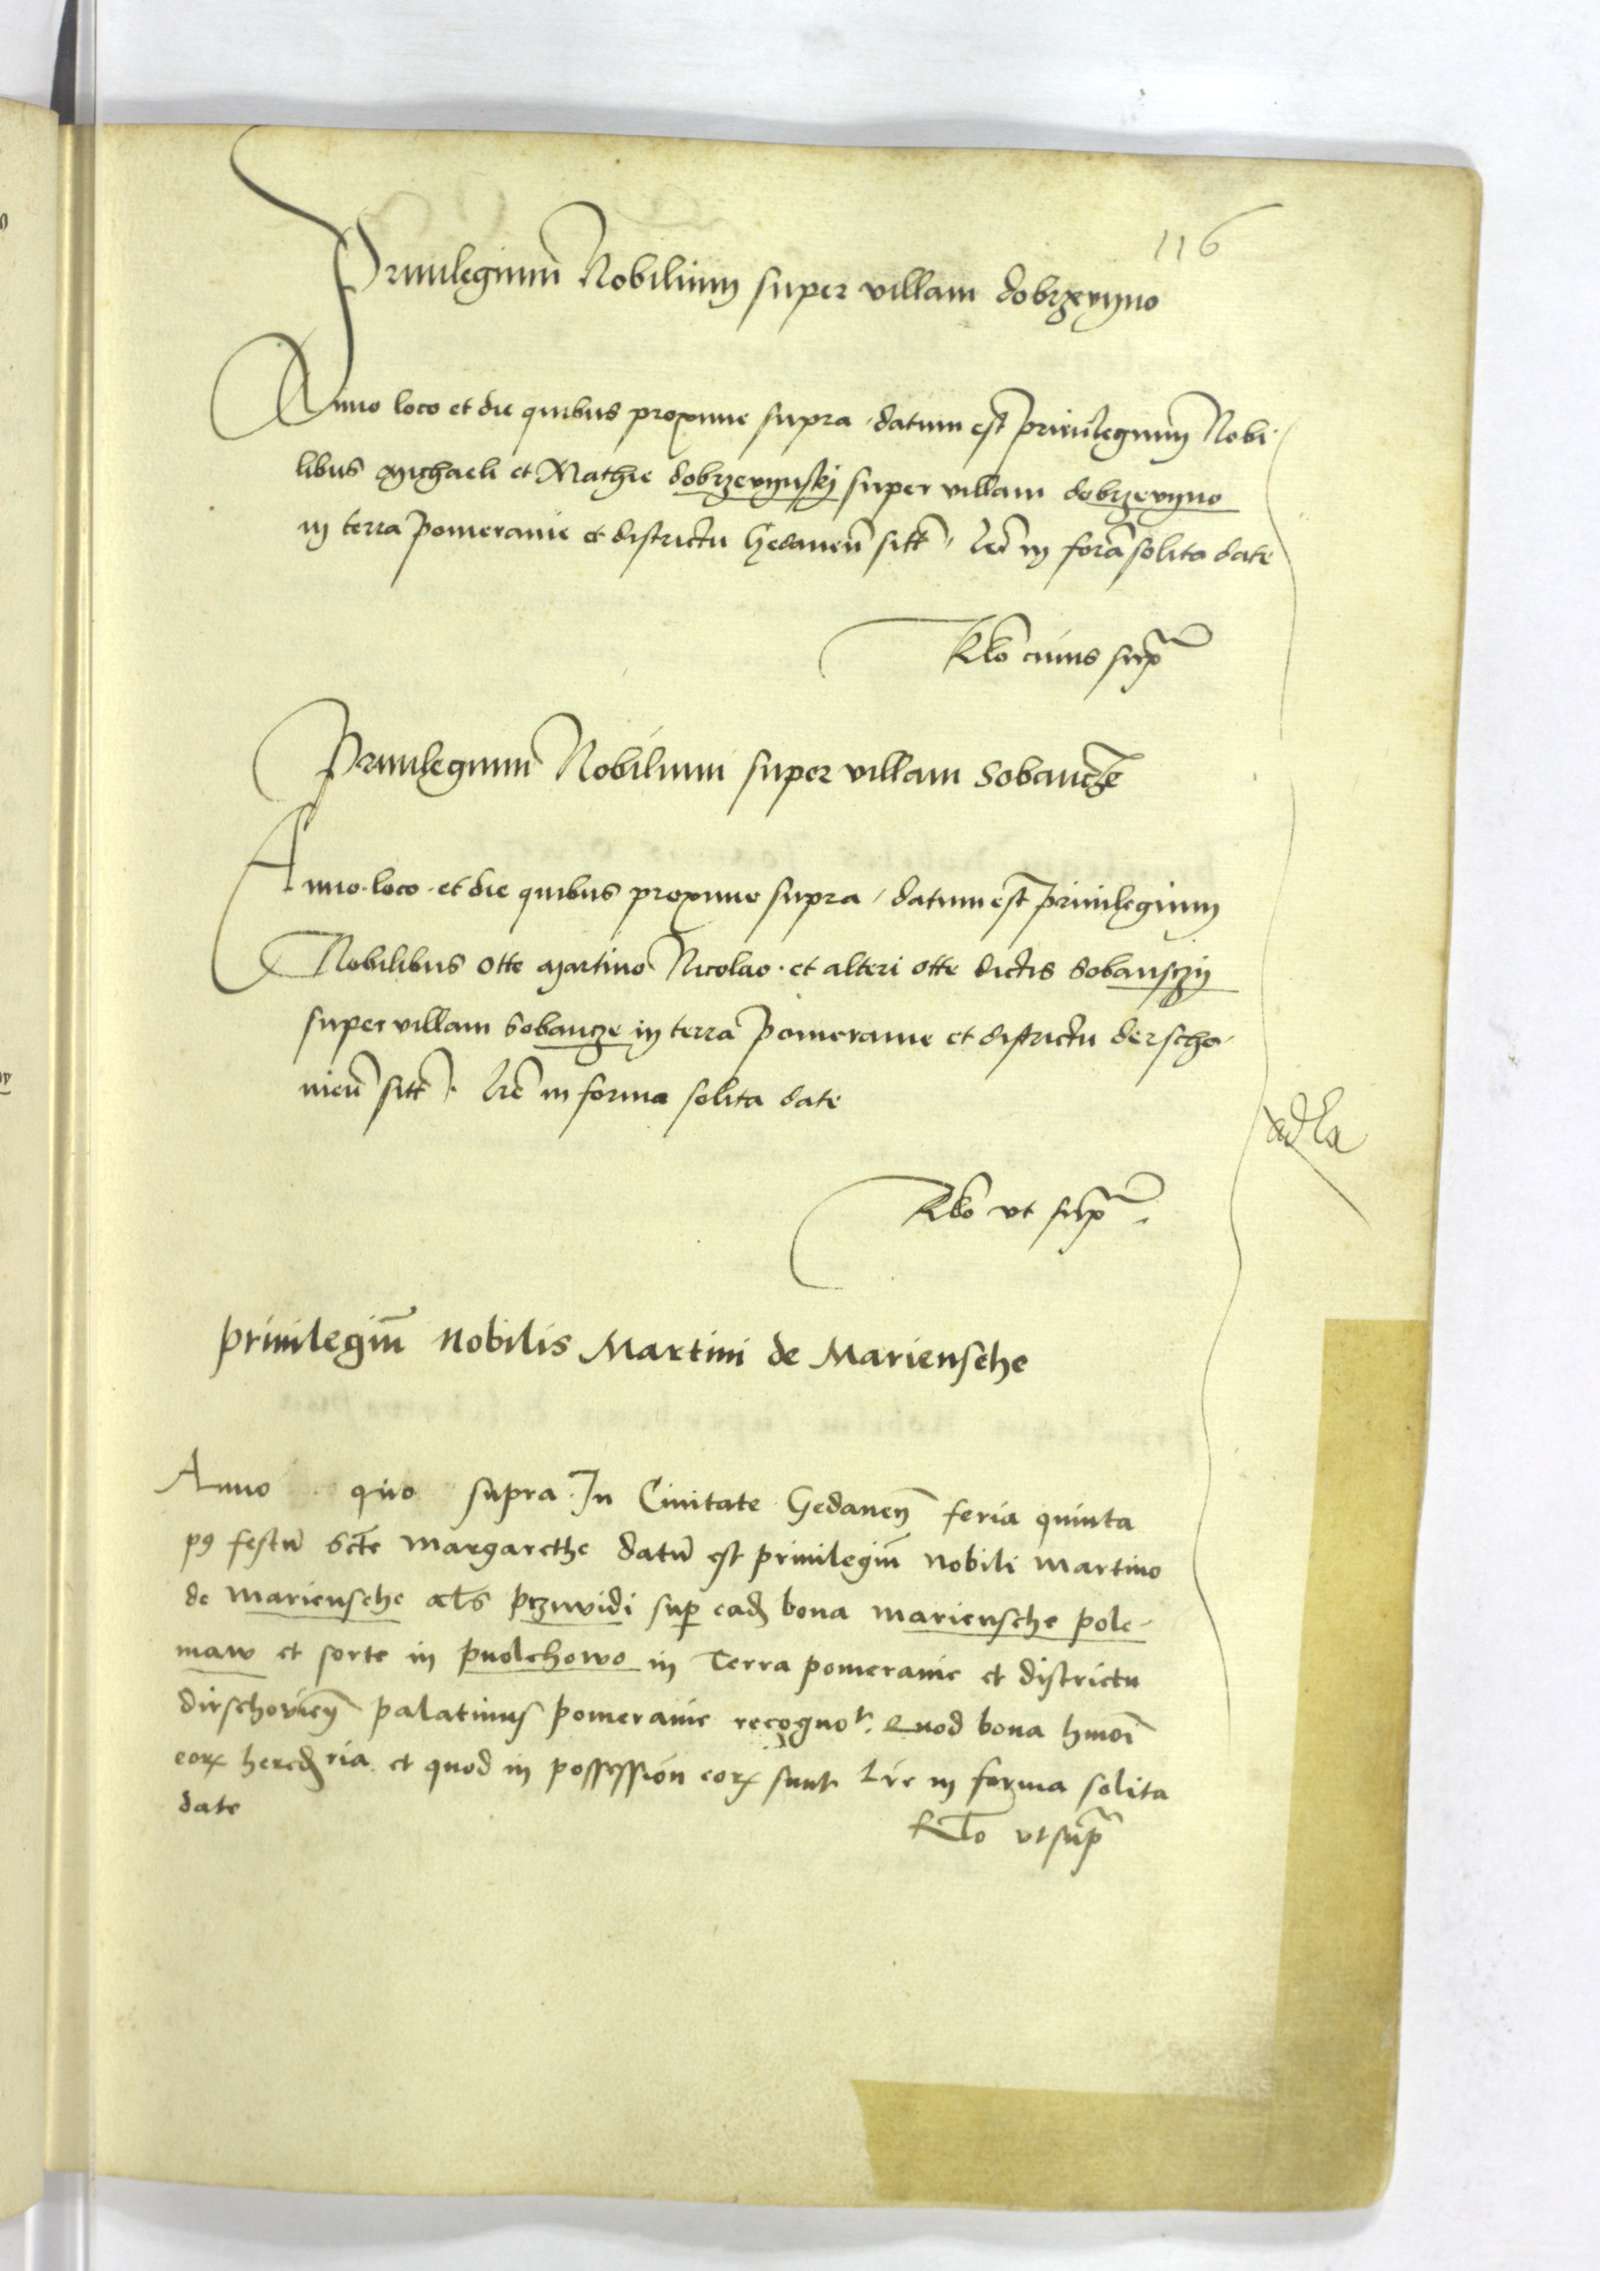 116
Priuilegium Nobilium super villam dobrzevyno
Anno loco et die quibus proxime supra, datum est priuilegium Nobi-
libus Michaeli et Mathie dobrzevynskij super villam dobrzevyno
in terra Pomeranie et districtu Gedaneñ sitt̃, lr̃e in forã solita date
Rl̃o cuius supª
Priuilegium Nobilium super villam Sobancze
Anno·loco·et die quibus proxime supra, datum est priuilegium
Nobilibus Otte Martino Nicolao·et alteri Otte dictis Sobansczij
super villam Sobancze in terra Pomeranie et districtu derscho-
uieñ sitt̃. Lr̃e in forma solita date
adla
Rl̃o vt supª.
priuilegiũ nobilis Martini de Mariensche
Anno quo supra·In Ciuitate Gedaneñ feria quinta
p9 festũ Sctẽ Margarethe datũ est priuilegiũ nobili Martino
de Mariensche als̃ przwidi sup̱ ead̃ bona Mariensche pole-
maw et sorte in puolchowo in Terra pomeranie et districtu
dirschovieñ palatinus pomeranie recognoᵗ. Quod bona hmoi̇̃
eoꝝ hered̃ria et quod in possession̄ eoꝝ sunt. Lr̃e in forma solita
date
Rl̃o vt supª